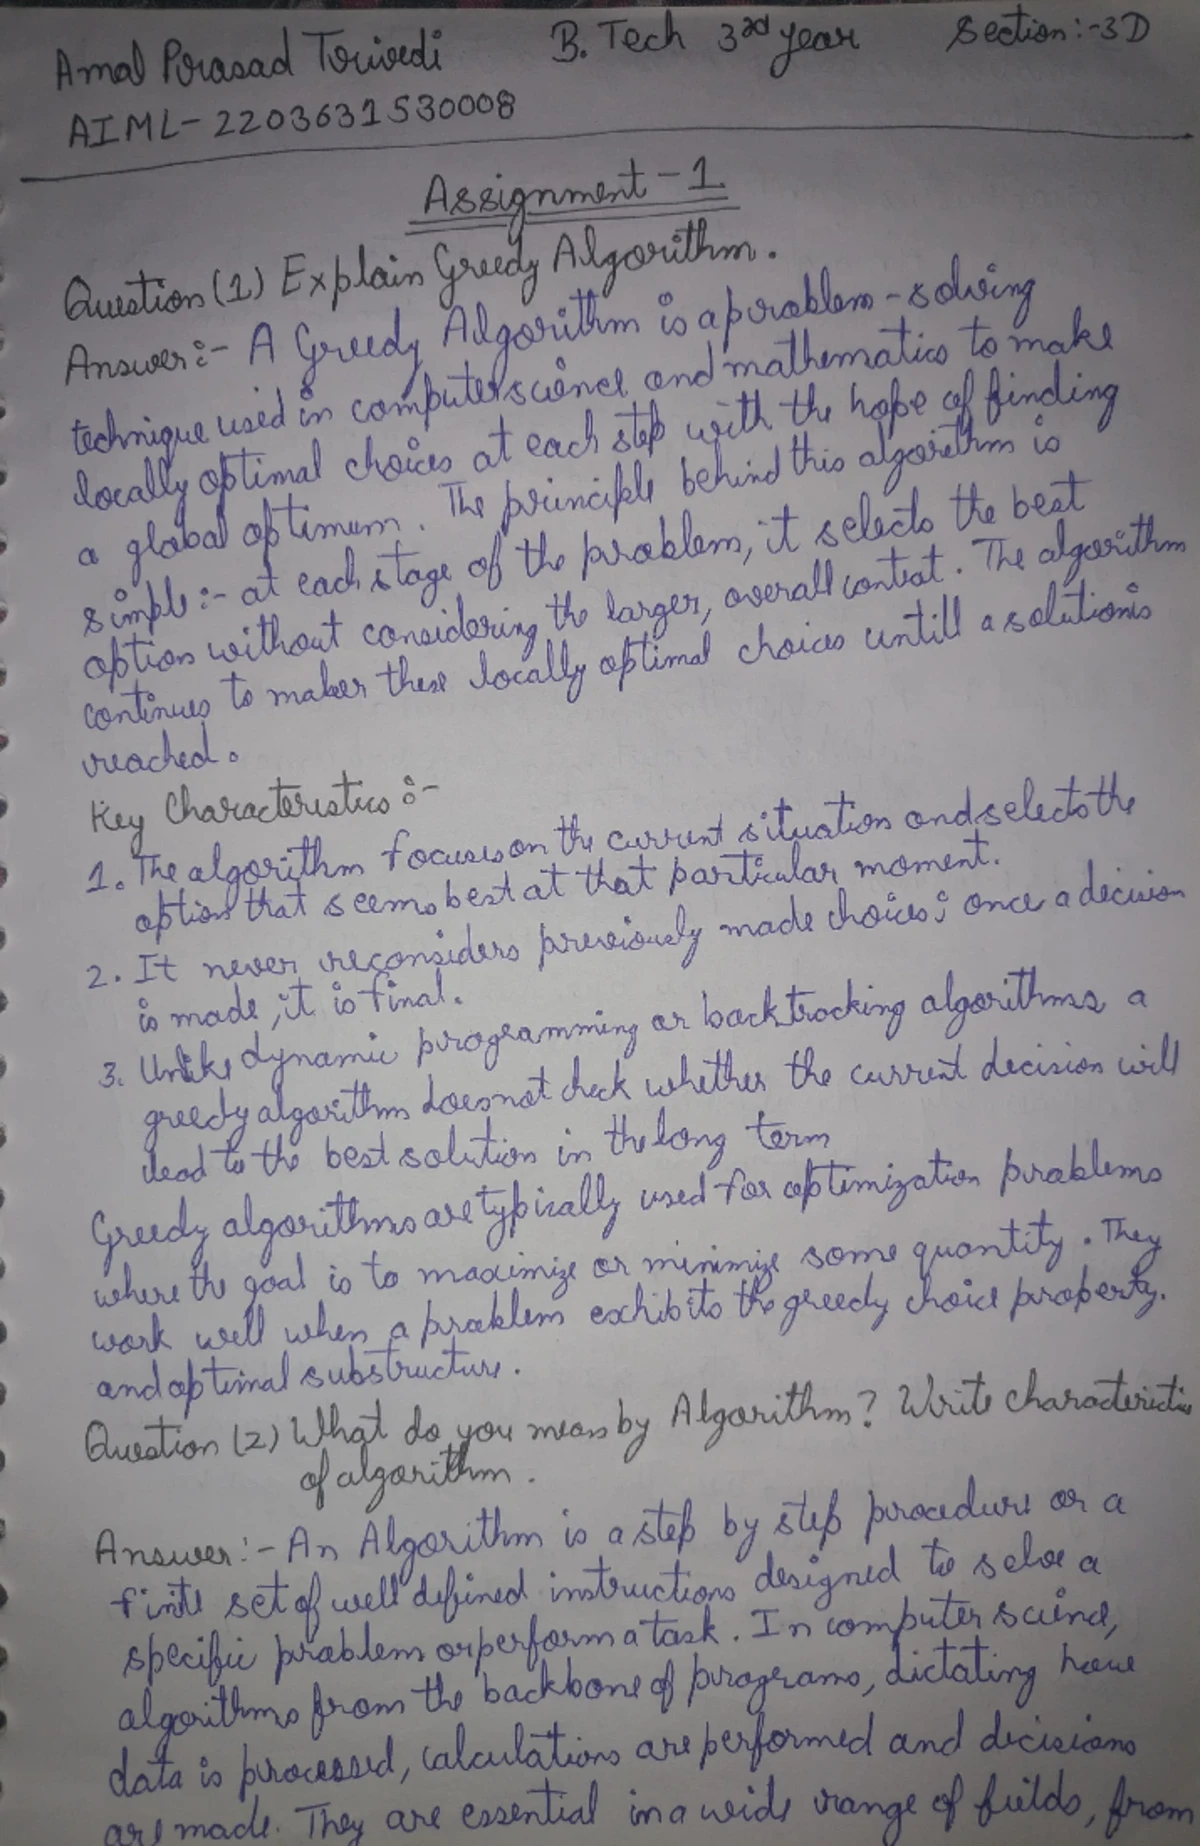 Amal Prasad Trivedi B. Tech 3rd year Section:-3D
AIML-2203631530008
Assignment-1
Question (1) Explain Greedy Algorithm.
Answer:- A Greedy Algorithm is a problem-solving
technique used in computer science and mathematics to make
locally optimal choices at each step with the hope of finding
a global optimum. The principle behind this algorithm is
simple:- at each stage of the problem, it selects the best
option without considering the larger, overall context. The algorithm
continues to maker these locally optimal choices untill a solution is
reached.
Key Characteristics:-
1. The algorithm focuses on the current situation and selects the
option that seems best at that particular moment.
2. It never reconsiders previously made choices; once a decision
is made, it is final.
3. Unlike dynamic programming or backtracking algorithms, a
greedy algorithm does not check whether the current decision will
lead to the best solution in the long term
Greedy algorithms are typically used for optimization problems
where the goal is to maximize or minimize some quantity. They
work well when a problem exhibits the greedy choice property.
and optimal substructure.
Question (2) What do you mean by Algorithm? Write characteristics
of algorithm.
Answer:- An Algorithm is a step by step procedure or a
finite set of well defined instructions designed to solve a
specific problem or perform a task. In computer science,
algorithms from the backbone of programs, dictating how
data is processed, calculations are performed and decisions
are made. They are essential in a wide range of fields, from